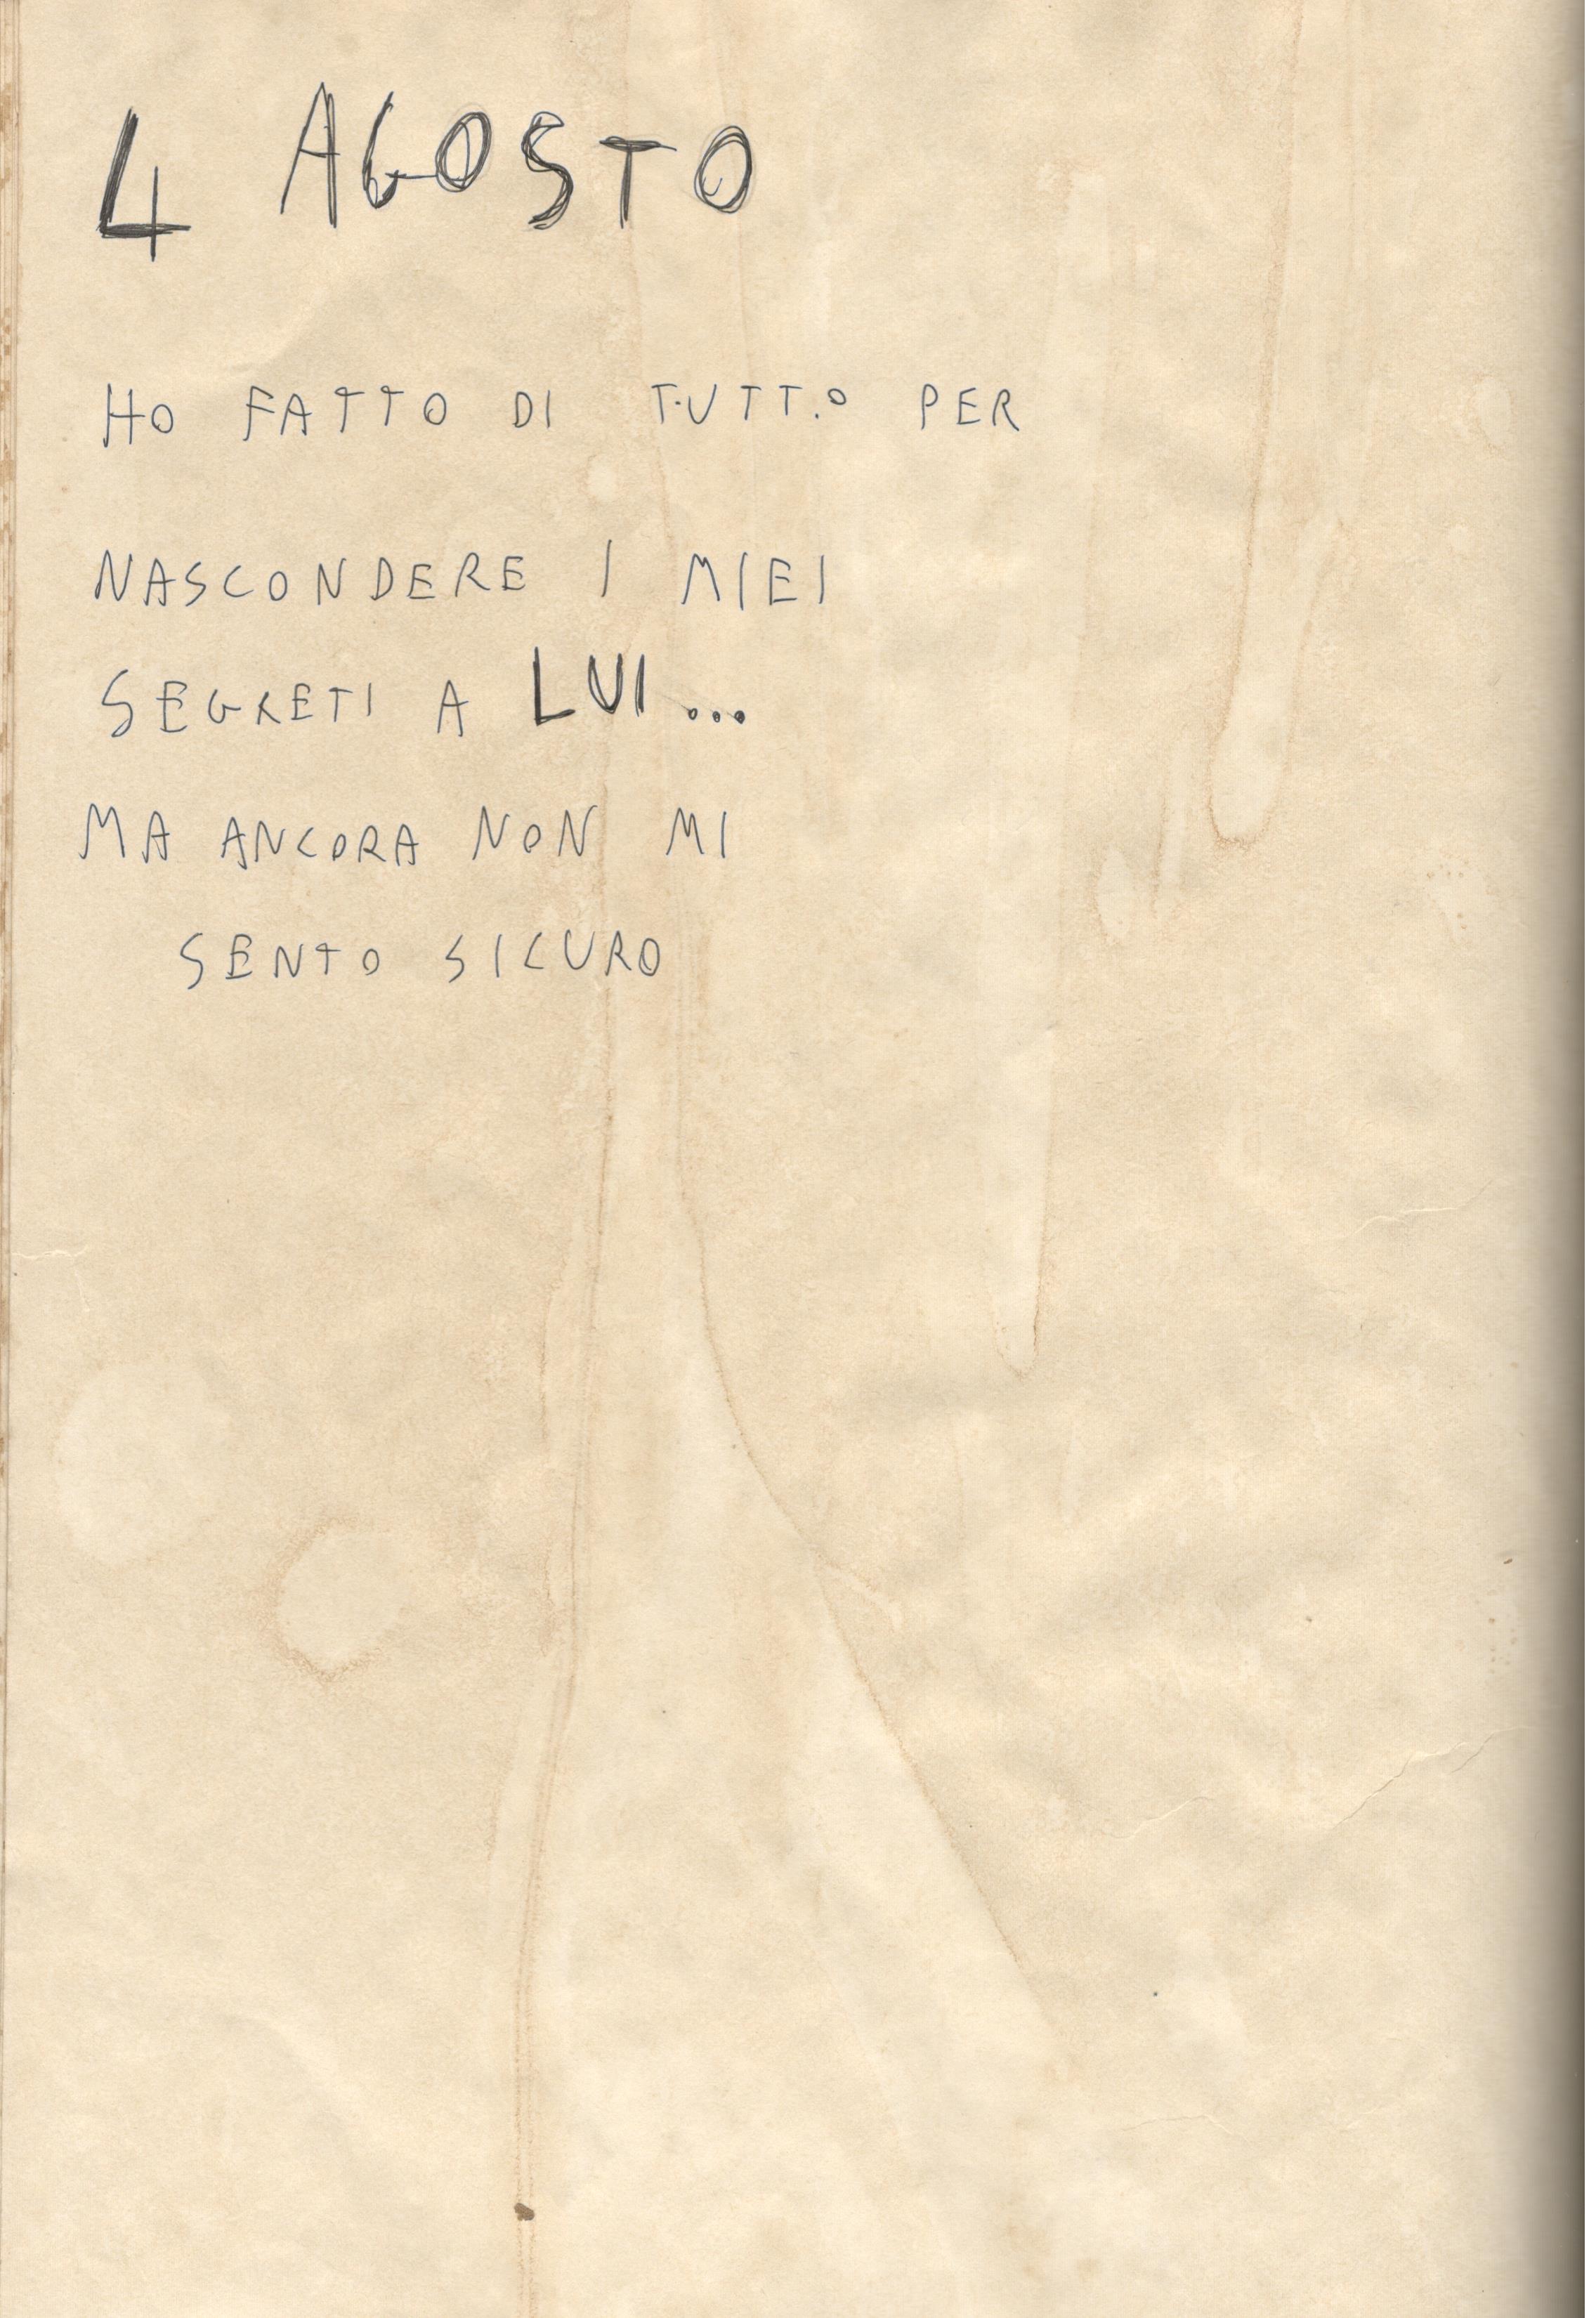 4 AGOSTO
HO FATTO DI TUTTO PER
NASCONDERE I MIEI
SEGRETI A LUI...
MA ANCORA NON MI
SENTO SICURO